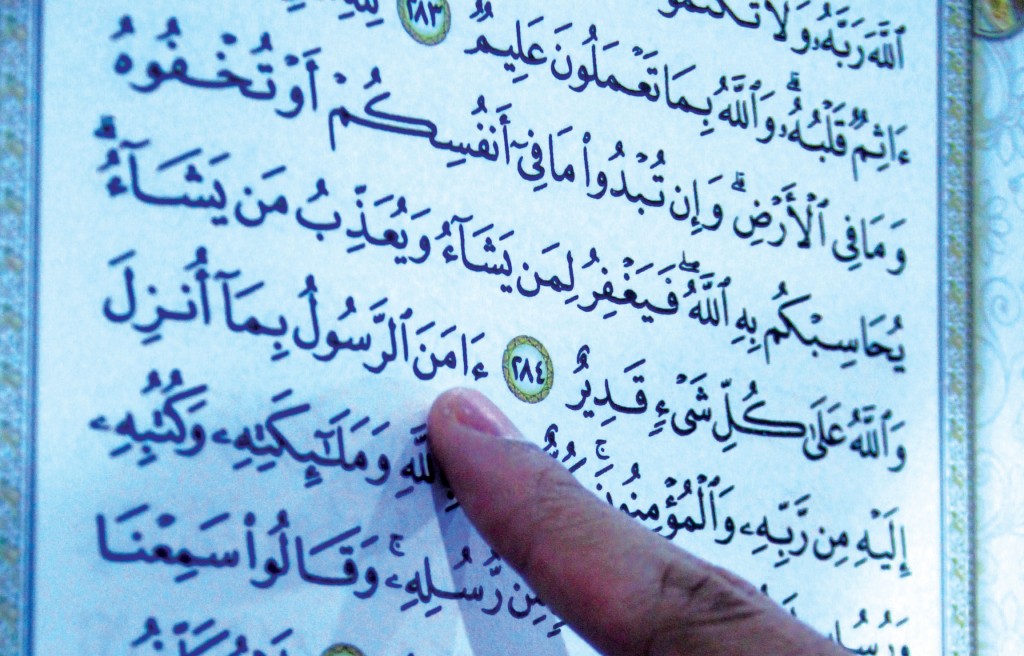 ٱللَّهَ رَبَّهُۥ وَلَا
ءَاثِمٌ قَلْبُهُۥ ۗ وَٱللَّهُ بِمَا تَعْمَلُونَ عَلِيمٌ ٢٨٣ لِلَّهِ
وَمَا فِى ٱلْأَرْضِ ۗ وَإِن تُبْدُوا۟ مَا فِىٓ أَنفُسِكُمْ أَوْ تُخْفُوهُ
يُحَاسِبْكُم بِهِ ٱللَّهُ ۖ فَيَغْفِرُ لِمَن يَشَآءُ وَيُعَذِّبُ مَن يَشَآءُ ۗ
وَٱللَّهُ عَلَىٰ كُلِّ شَىْءٍ قَدِيرٌ ٢٨٤ ءَامَنَ ٱلرَّسُولُ بِمَآ أُنزِلَ
إِلَيْهِ مِن رَّبِّهِۦ وَٱلْمُؤْمِنُونَ ۚ بِٱللَّهِ وَمَلَٰٓئِكَتِهِۦ وَكُتُبِهِۦ
مِّن رُّسُلِهِۦ ۚ وَقَالُوا۟ سَمِعْنَا